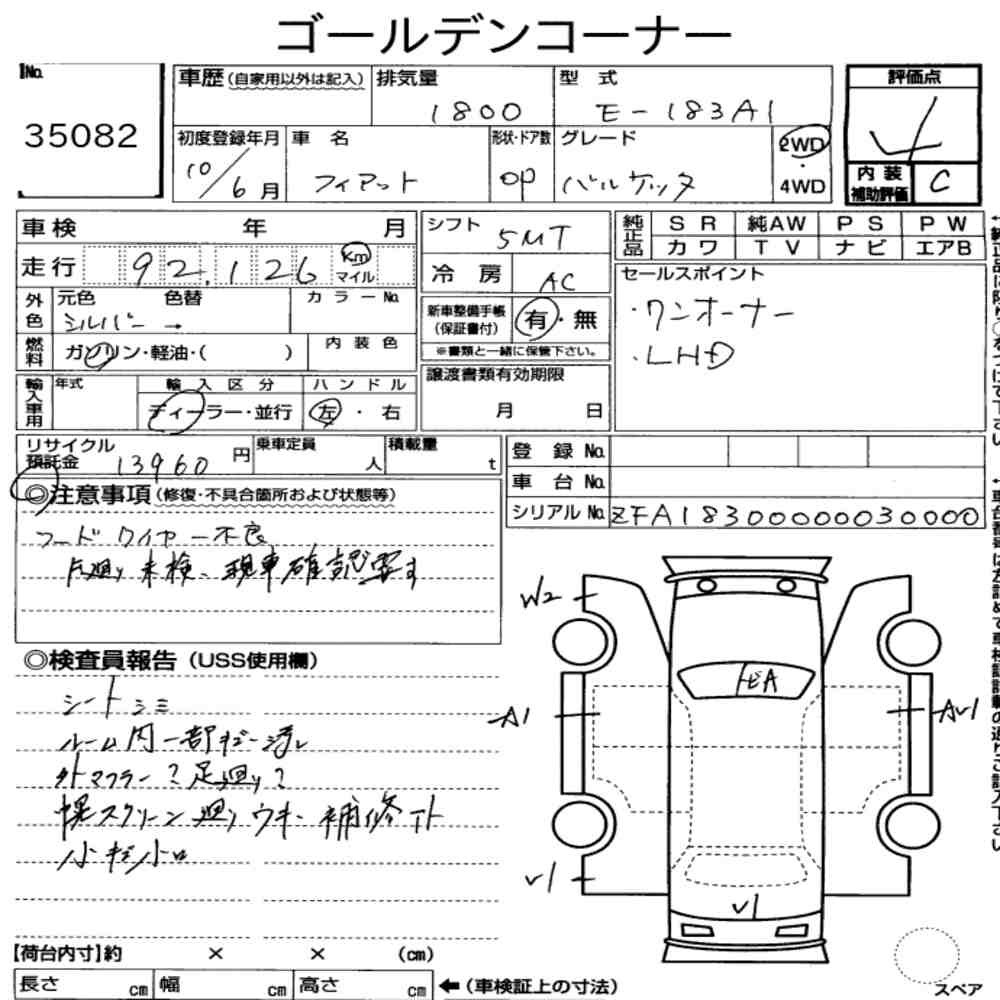 ゴールデンコーナー
No.
35082
車歴(自家用以外は記入)
排気量
1800
型 式
E-183A1
評価点
4
初度登録年月
10/6月
車 名
フィアット
形状・ドア数
OP
グレード
バルケッタ
2WD
・
4WD
内 装
補助評価
C
車検 年 月
走行 92,126 km
マイル
外色
元色 色替
シルバー →
カラーNo.
燃料
ガソリン・軽油・( )
内 装 色
輸入車用
年式
輸 入 区 分
ディーラー・並行
ハ ン ド ル
左 ・ 右
シフト
5MT
冷 房
AC
新車整備手帳
(保証書付)
有・無
※書類と一緒に保管下さい。
譲渡書類有効期限
月 日
純正品
S R 純AW P S P W
カ ワ T V ナ ビ エアB
セールスポイント
・ワンオーナー
・LHD
リサイクル
預託金 13960 円
乗車定員
人
積載量
t
登 録 No.
車 台 No.
シリアル No. ZFA18300000030000
◎注意事項(修復・不具合箇所および状態等)
フードワイヤー不良
足廻り未検、現車確認要す
◎検査員報告(USS使用欄)
シートシミ
ルーム内一部
外マフラー?足廻り?
幌スクリーン廻りウキ・補修
小キズ小凹
W2
A1
V1
AU1
V1
スペア
【荷台内寸】約 × × (cm)
長さ cm
幅 cm
高さ cm
←(車検証上の寸法)